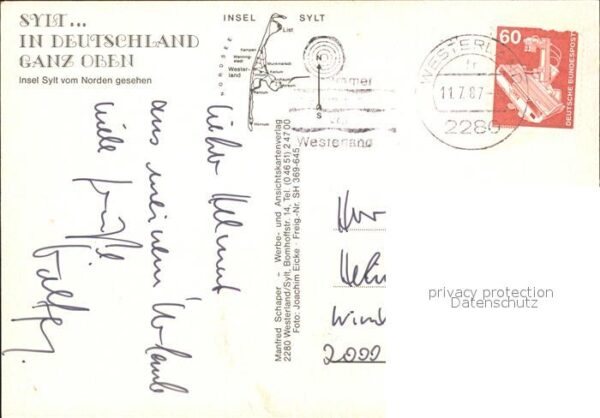 SYLT...
IN DEUTSCHLAND
GANZ OBEN
Insel Sylt vom Norden gesehen
INSEL SYLT
NORDSEE
List
Kampen
Wester-
land
Munkmarsch
Keitum
Morsum
Rantum
Hörnum
N
S
Westerland
WESTERL
11.7.87
2280
60
DEUTSCHE BUNDESPOST
Manfred Schaper – Werbe- und Ansichtskartenverlag
2280 Westerland/Sylt, Bomhoffstr. 14, Tel. (0 46 51) 2 47 00
Foto: Joachim Eicke · Freig.-Nr. SH 369-645
Lieber Helmut
aus meinem Urlaub
viele Grüße
Walter
Her
Helm
2000
privacy protection
Datenschutz